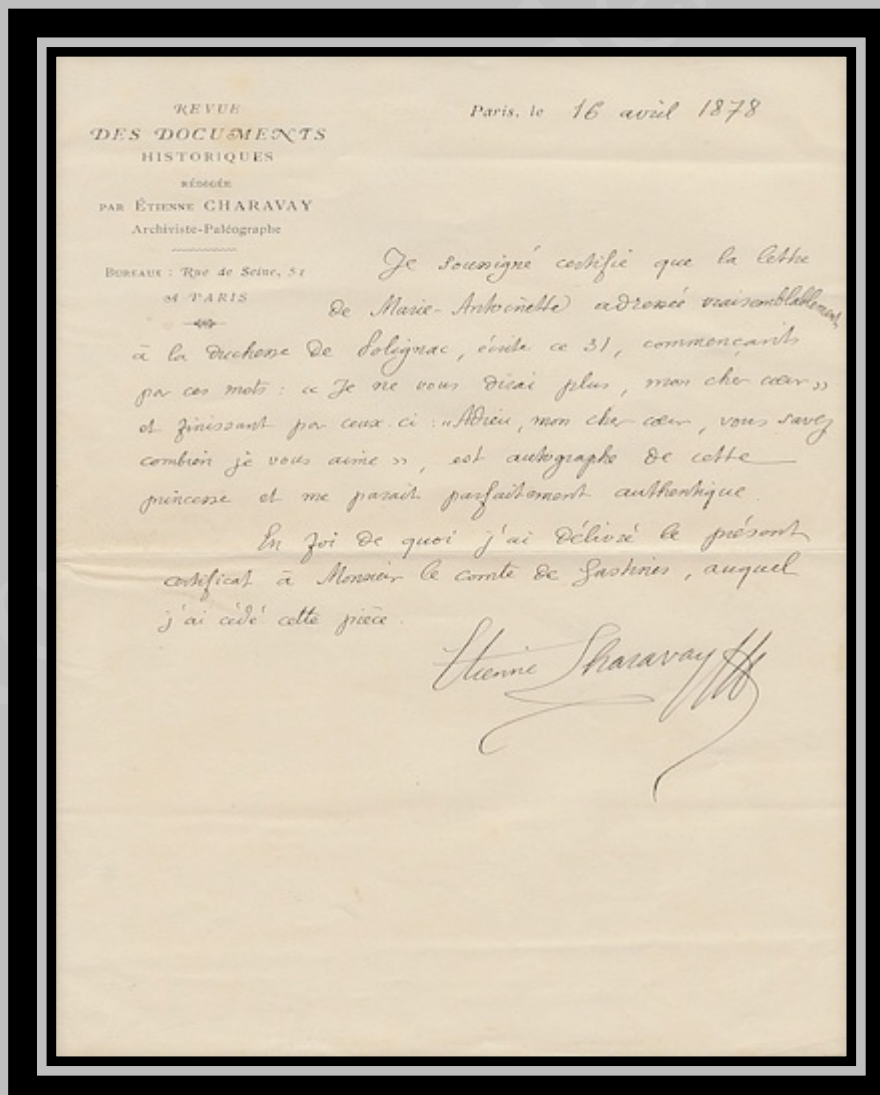 REVUE
DES DOCUMENTS
HISTORIQUES
RÉDIGÉE
PAR ÉTIENNE CHARAVAY
Archiviste-Paléographe
BUREAUX : Rue de Seine, 51
A PARIS
Paris, le 16 avril 1878
Je soussigné certifie que la lettre
de Marie-Antoinette adressée vraisemblablement
à la duchesse de Polignac, écrite ce 31, commençant
par ces mots : « Je ne vous dirai plus, mon cher cœur »
et finissant par ceux-ci : « Adieu, mon cher cœur, vous savez
combien je vous aime », est autographe de cette
princesse et me paraît parfaitement authentique.
En foi de quoi j'ai délivré le présent
certificat à Monsieur le comte de Gastines, auquel
j'ai cédé cette pièce.
Etienne Charavay